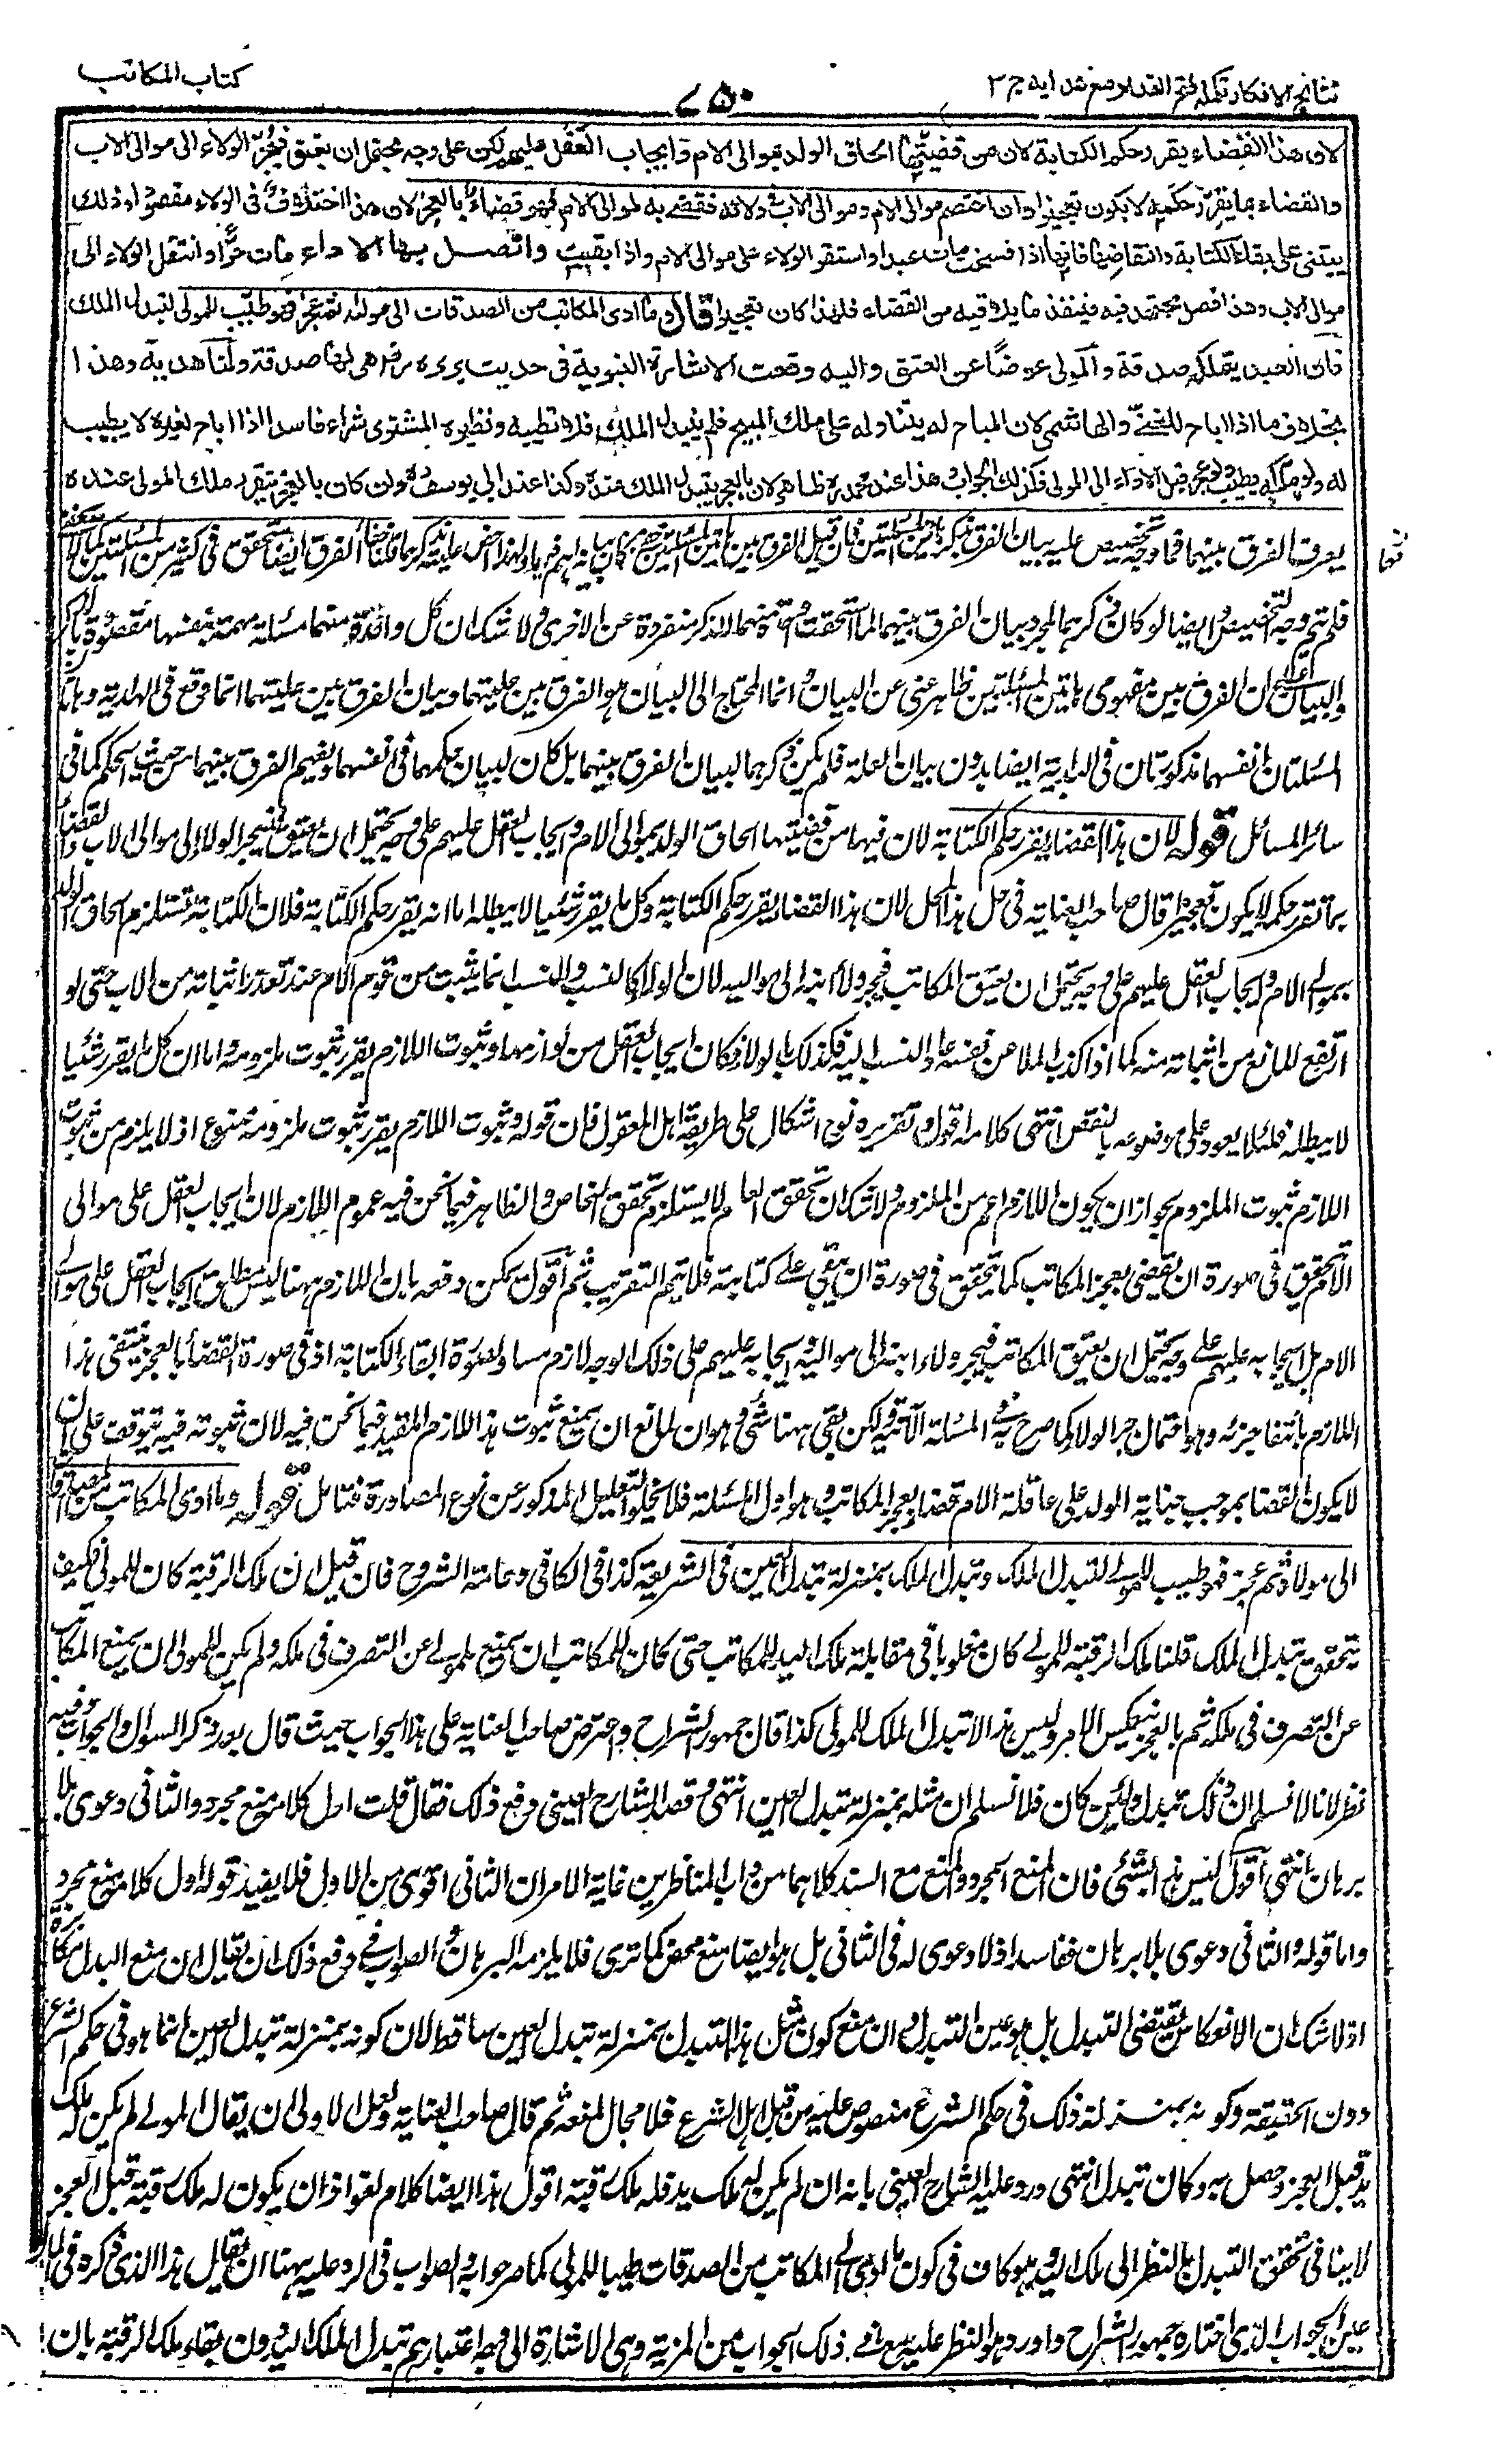 نتائج الافكار تكمله فتح القدير مع هدايه ج ٣
٧٥٠
كتاب المكاتب
لان هذا القضاء يقرر حكم الكتابة لان من قضيتها الحاق الولد بموالى الام وايجاب العقل عليهم لكن على وجه يحتمل ان يعتق فيجر الولاء الى موالى الاب
والقضاء بما يقرر حكمه لا يكون تعجيزا وان اختصم موالى الام وموالى الاب فى ولائه فقضى به لموالى الام فهو قضاء بالعجز لان هذا اختلاف فى الولاء مقصودا وذلك
يبتنى على بقاء الكتابة وانتقاضها فانها اذا فسخت مات عبدا واستقر الولاء على موالى الام واذا بقيت واتصل بها الاداء مات حرا وانتقل الولاء الى
موالى الاب وهذا فصل مجتهد فيه فينفذ ما يلاقيه من القضاء فلهذا كان تعجيزا قال وما ادى المكاتب من الصدقات الى مولاه ثم عجز فهو طيب للمولى لتبدل الملك
فان العبد يتملكه صدقة والمولى عوضا عن العتق واليه وقعت الاشارة النبوية فى حديث بريرة رض هى لها صدقة ولنا هدية وهذا
بخلاف ما اذا اباح للغنى والهاشمى لان المباح له يتناوله على ملك المبيح فلم يتبدل الملك فلا تطيبه ونظيره المشترى شراء فاسدا اذا اباح لغيره لا يطيب
له ولو ملكه يطيب ولو عجز قبل الاداء الى المولى فكذلك الجواب هذا عند محمد ره ظاهر لان بالعجز يتبدل الملك عنده وكذا عند ابى يوسف وان كان بالعجز يتقرر ملك المولى عنده
يعرف الفرق بينهما فما وجه تخصيص عليه ببيان الفرق
فلم يتم وجه التخصيص وايضا لو كان ذكرهما لمجرد بيان الفرق بينهما لما استحقت واحدة منهما للذكر منفردة عن الاخرى ولا شك ان كل واحدة منهما مسئلة مهمة بنفسها مقصودة بالذكر
والبيان ان الفرق بين مفهومى هاتين المسئلتين ظاهر غنى عن البيان وانما المحتاج الى البيان هو الفرق بين علتيهما وبيان الفرق بين علتيهما انما وقع فى الهداية وهاتا
المسئلتان انفسهما مذكورتان فى البداية ايضا بدون بيان العلة فلم يكن ذكرهما لبيان الفرق بينهما بل كان لبيان حكمهما فى انفسهما ويفهم الفرق بينهما من حيث الحكم كما فى
سائر المسائل قوله لان هذا القضاء يقرر حكم الكتابة لان فيها من قضيتها الحاق الولد بموالى الام وايجاب العقل عليهم على وجه يحتمل ان يعتق فينجر الولاء الى موالى الاب والقضاء
بما تقرر حكمه لا يكون تعجيزا قال صاحب العناية فى حل هذا المحل لان هذا القضاء يقرر حكم الكتابة وكل ما يقرر شئيا لا يبطله اما انه يقرر حكم الكتابة فلان الكتابة تستلزم الحاق الولد
بموالى الام وايجاب العقل عليهم على وجه يحتمل ان يعتق المكاتب فيجر ولاء ابنه الى مواليه لان الولاء كالنسب والنسب انما يثبت من قوم الام عند تعذر اثباته من الاب حتى لو
ارتفع المانع من اثباته منه كما اذا اكذب الملاعن نفسه عاد النسب اليه فكذلك الولاء فكان ايجاب العقل من لوازمها وثبوت اللازم يقرر ثبوت ملزومه واما ان كل ما يقرر شئيا
لا يبطله فلئلا يعود على موضوعه بالنقض انتهى كلامه اقول فى تقريره نوع اشكال على طريقة اهل المعقول فان قوله وثبوت اللازم يقرر ثبوت ملزومه ممنوع اذ لا يلزم من ثبوت
اللازم ثبوت الملزوم بجواز ان يكون اللازم اعم من الملزوم ولا شك ان تحقق العام لا يستلزم تحقق الخاص والظاهر فيما نحن فيه عموم اللازم لان ايجاب العقل على موالى
الام يتحقق فى صورة ان يقضى بعجز المكاتب كما يتحقق فى صورة ان يبقى على كتابته فلا يتم التقريب ثم اقول يمكن دفعه بان اللازم ههنا ليس مطلق ايجاب العقل على موالى
الام بل ايجابه عليهم على وجه يحتمل ان يعتق المكاتب فيجر ولاء ابنه الى مواليه وايجابه عليهم على ذلك الوجه لازم مساو لصورة ابقاء الكتابة اذ فى صورة القضاء بالعجز ينتفى هذا
اللازم بانتفاء جزئه وهو احتمال جر الولاء كما صرح به فى المسئلة الآتية ولكن بقى ههنا شئ وهو ان للمانع ان يمنع ثبوت هذا اللازم المقيد فيما نحن فيه لان ثبوته فيه يتوقف على ان
لا يكون القضاء بموجب جناية الولد على عاقلة الام قضاء بعجز المكاتب وهو اول المسئلة فلا يخلو التعليل المذكور عن نوع المصادرة فتامل قوله وما ادى المكاتب من الصدقات
الى مولاه ثم عجز فهو طيب للمولى لتبدل الملك وتبدل الملك بمنزلة تبدل العين فى الشريعة كذا فى الكافى وعامة الشروح فان قيل ان ملك الرقبة كان للمولى فكيف
يتحقق تبدل الملك قلنا ملك الرقبة للمولى كان مغلوبا فى مقابلة ملك اليد للمكاتب حتى كان للمكاتب ان يمنع المولى عن التصرف فى ملكه ولم يكن للمولى ان يمنع المكاتب
عن التصرف فى ملكه ثم بالعجز ينعكس الامر وليس هذا الا تبدل الملك للمولى كذا قال جمهور الشراح واعترض صاحب العناية على هذا الجواب حيث قال بعد ذكر السوال والجواب وفيه
نظر لانا لا نسلم ان ذلك تبدل ولئن كان فلا نسلم ان مثله بمنزلة تبدل العين انتهى وقصد الشارح العينى دفع ذلك فقال قلت اول كلامه منع مجرد والثانى دعوى بلا
برهان انتهى اقول ليس هذا بشئ فان المنع المجرد والمنع مع السند كلاهما من داب المناظرين غاية الامر ان الثانى اقوى من الاول فلا يفيد قوله اول كلامه منع مجرد
واما قوله والثانى دعوى بلا برهان ففاسد اذ لا دعوى له فى الثانى بل هو ايضا منع محض كما ترى فلا يلزمه البرهان والصواب فى دفع ذلك ان يقال ان منع التبدل مكابرة
اذ لا شك ان الانعكاس يقتضى التبدل بل هو عين التبدل وان منع كون مثل هذا التبدل بمنزلة تبدل العين ساقط لان كونه بمنزلة تبدل العين انما هو فى حكم الشرع
دون الحقيقة وكونه بمنزلة ذلك فى حكم الشرع منصوص عليه من قبل اهل الشرع فلا مجال لمنعه ثم قال صاحب العناية ولعل الاولى ان يقال المولى لم يكن له ملك
يد قبل العجز وحصل به وكان تبدلا انتهى ورد عليه الشارح العينى بانه ان لم يكن له ملك يد فله ملك رقبة اقول هذا ايضا كلام لغو اذ ان يكون له ملك رقبة قبل العجز
لا ينافى تحقق التبدل بالنظر الى ملك اليد وهو كاف فى كون ما ادى المكاتب من الصدقات طيبا للمولى كما صرحوا به والصواب فى الرد عليه ههنا ان يقال هذا الذى ذكره فى
عين الجواب الذى اختاره جمهور الشراح واورد هو النظر عليه مع ما فى ذلك الجواب من المزية وهى الاشارة الى وجه اعتبارهم تبدل الملك اليد دون بقاء ملك الرقبة بان